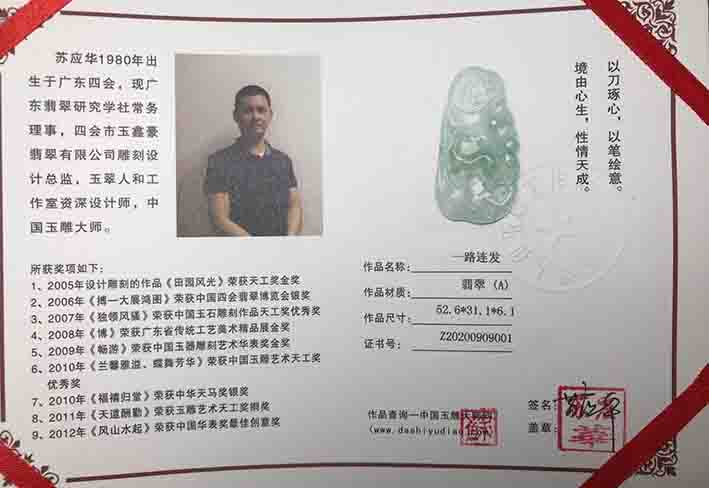 苏应华1980年出
生于广东四会，现广
东翡翠研究学社常务
理事，四会市玉鑫豪
翡翠有限公司雕刻设
计总监，玉翠人和工
作室资深设计师，中
国玉雕大师。
以刀琢心，以笔绘意。
境由心生，性情天成。
所获奖项如下：
1、2005年设计雕刻的作品《田园风光》荣获天工奖金奖
2、2006年《搏一大展鸿图》荣获中国四会翡翠博览会银奖
3、2007年《独领风骚》荣获中国玉石雕刻作品天工奖优秀奖
4、2008年《博》荣获广东省传统工艺美术精品展金奖
5、2009年《畅游》荣获中国玉器雕刻艺术华表奖金奖
6、2010年《兰馨雅溢、蝶舞芳华》荣获中国玉雕艺术天工奖
优秀奖
7、2010年《福禧归堂》荣获中华天马奖银奖
8、2011年《天道酬勤》荣获玉雕艺术天工奖铜奖
9、2012年《风山水起》荣获中国华表奖最佳创意奖
作品名称：一路连发
作品材质：翡翠 (A)
作品尺寸：52.6*31.1*6.1
证书号：Z20200909001
作品查询—中国玉雕大师网
(www.dashiyudiao.com)
签名：
盖章：